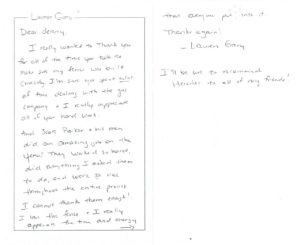 Lauren Gray
Dear Jeremy,
I really wanted to thank you
for all of the time you took to
make sure my fence was
I'm sure you spent a lot
of time dealing with the gas
company + I really appreciate
all of your hard work.
And Scott Parker + his men
did an amazing job on the
fence! They worked so hard,
did everything I asked them
to do, and were so nice
throughout the entire process.
I cannot thank them enough!
I love the fence + I really
appreciate the time and energy
that everyone put into it.
Thanks again!
- Lauren Gray
I'll be sure to recommend
to all of my friends!